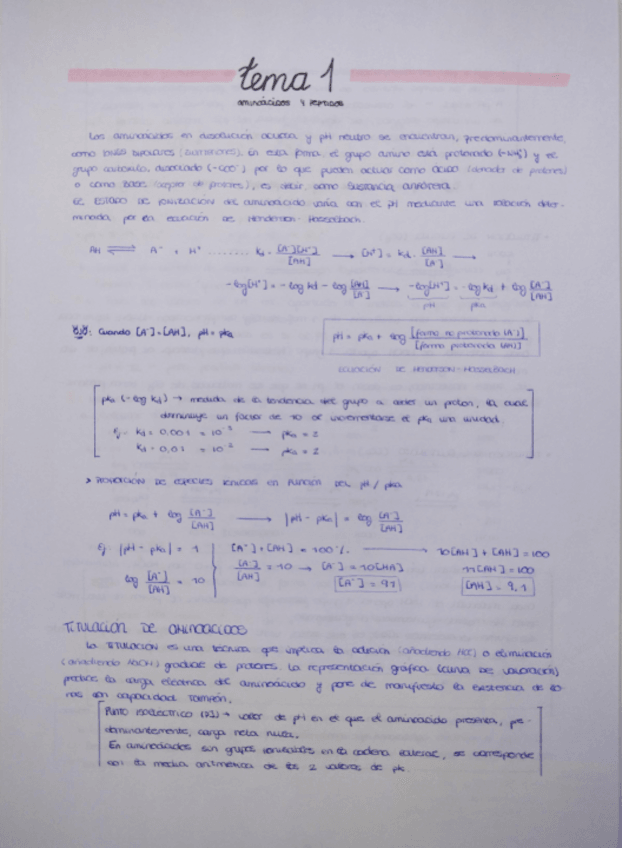 tema 1
aminoácidos y péptidos
Los aminoácidos en disolución acuosa y pH neutro se encuentran, predominantemente,
como iones bipolares (zwitteriones). En esta forma, el grupo amino está protonado (-NH3+) y el
grupo carboxilo, disociado (-COO-) por lo que pueden actuar como ácido (donador de protones)
o como base (aceptor de protones), es decir, como sustancia anfótera.
El estado de ionización del aminoácido varía con el pH mediante una relación deter-
minada por la ecuación de Henderson-Hasselbach.
AH ⇌ A- + H+ ........ Kd = [A-][H+]/[AH] → [H+] = Kd · [AH]/[A-] →
-log[H+] = -log Kd - log [AH]/[A-] → -log[H+] = -log Kd + log [A-]/[AH]
pH pKa
Cuando [A-] = [AH], pH = pKa
pH = pKa + log [forma no protonada (A-)]/[forma protonada (AH)]
ECUACIÓN DE HENDERSON-HASSELBACH
pKa (-log Kd) → medida de la tendencia del grupo a ceder un protón, la cual
disminuye un factor de 10 al incrementarse el pKa una unidad.
Ej- Kd = 0,001 = 10-3 → pKa = 2
Kd = 0,01 = 10-2 → pKa = 2
> PROPORCIÓN DE ESPECIES IÓNICAS EN FUNCIÓN DEL pH / pKa
pH = pKa + log [A-]/[AH] → |pH - pKa| = log [A-]/[AH]
Ej- |pH - pKa| = 1 [A-] + [AH] = 100% → 10[AH] + [AH] = 100
log [A-]/[AH] = 10 [A-]/[AH] = 10 → [A-] = 10[HA] 11[AH] = 100
[A-] = 91 [AH] = 9,1
TITULACIÓN DE AMINOÁCIDOS
La TITULACIÓN es una técnica que implica la adición (añadiendo HCl) o eliminación
(añadiendo NaOH) gradual de protones. La representación gráfica (CURVA DE VALORACIÓN)
predice la carga eléctrica del aminoácido y pone de manifiesto la existencia de zo-
nas con capacidad tampón.
PUNTO ISOELÉCTRICO (PI) → valor de pH en el que el aminoácido presenta, pre-
dominantemente, carga neta nula.
En aminoácidos sin grupos ionizables en la cadena lateral, se corresponde
con la media aritmética de los 2 valores de pK.